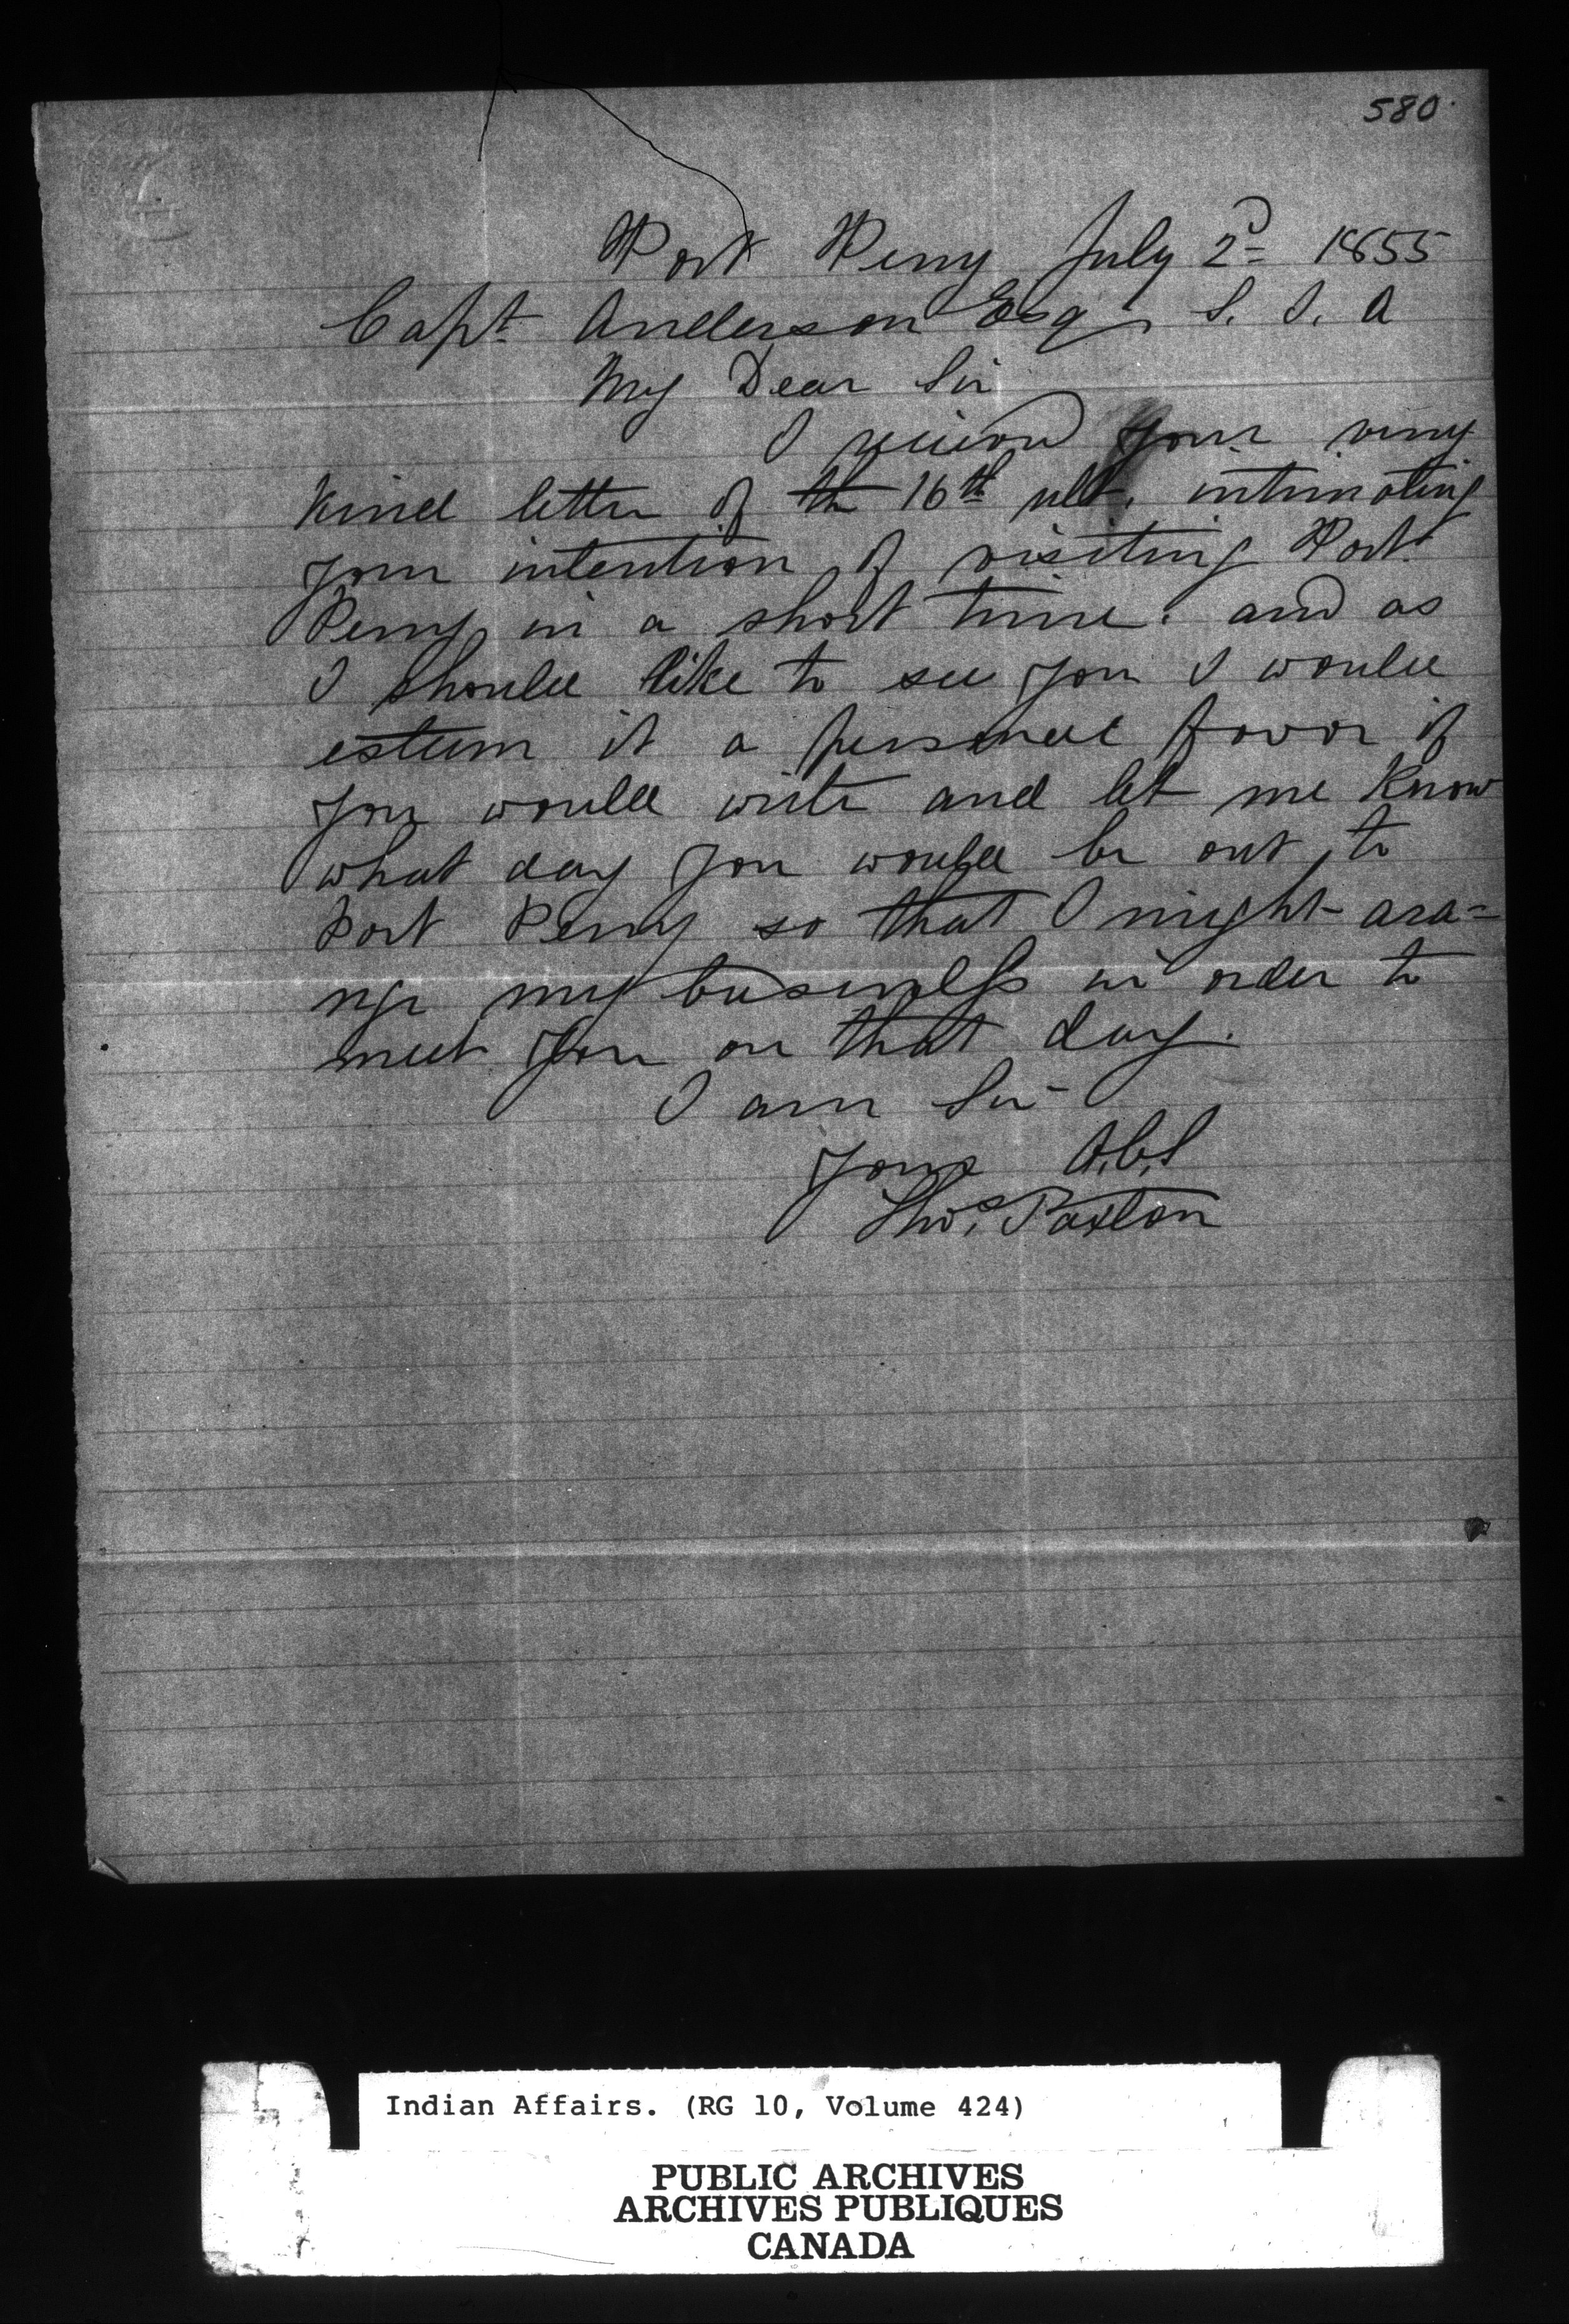 580
Port Perry July 2d 1855
Capt Anderson Esq, S. I. A
My Dear Sir
I recieved your very
kind letter of th 16th ult, intimating
your intention of visiting Port
Perry in a short time. and as
I should like to see you I would
esteem it a personal favor if
you would write and let me know
what day you would be out to
Port Perry so that I might ara=
nge my business in order to
meet you on that day.
I am Sir
Yours
Thos. Paxton
Indian Affairs. (RG 10, Volume 424)
PUBLIC ARCHIVES
ARCHIVES PUBLIQUES
CANADA